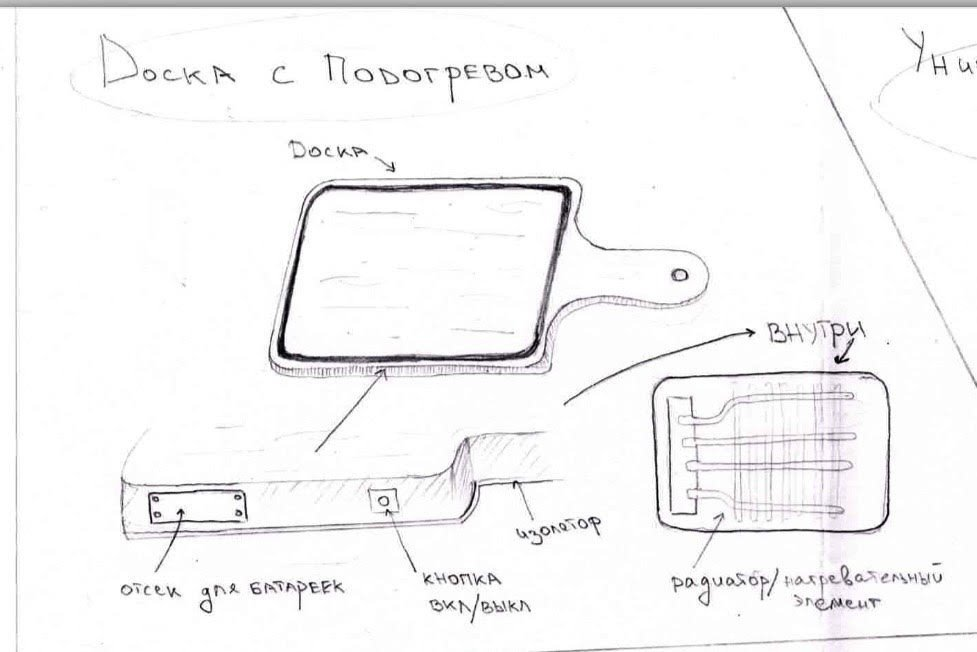 Доска с Подогревом
Уни
Доска
ВНУТРИ
изолетор
отсек для БАТАРЕЕК
КНОПКА
ВКЛ/ВЫКЛ
радиатор/нагревательный
элемент